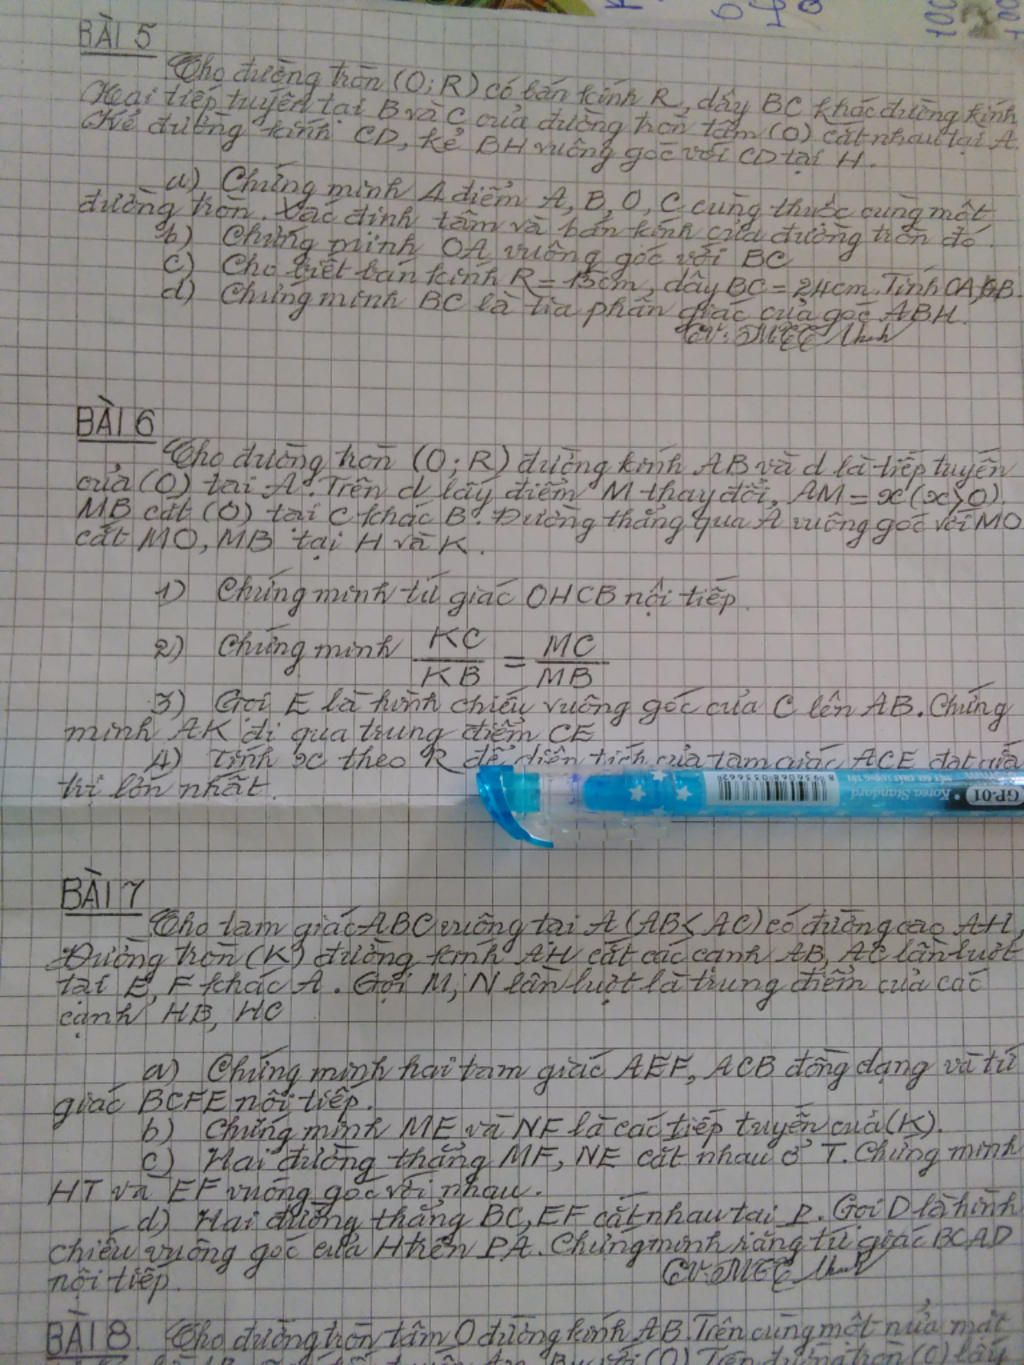 BÀI 5
Cho đường tròn (O; R) có bán kính R, dây BC khác đường kính
Hai tiếp tuyến tại B và C của đường tròn tâm (O) cắt nhau tại A
Kẻ đường kính CD, kẻ BH vuông góc với CD tại H.
a) Chứng minh 4 điểm A, B, O, C cùng thuộc cùng một
đường tròn. Xác định tâm và bán kính của đường tròn đó.
b) Chứng minh OA vuông góc với BC
c) Cho biết bán kính R = 15cm, dây BC = 24cm. Tính OA,
d) Chứng minh BC là tia phân giác của góc ABH.
BÀI 6
Cho đường tròn (O; R) đường kính AB và d là tiếp tuyến
của (O) tại A. Trên d lấy điểm M thay đổi, AM = x (x>0).
MB cắt (O) tại C khác B. Đường thẳng qua A vuông góc với MO
cắt MO, MB tại H và K.
1) Chứng minh tứ giác OHCB nội tiếp.
2) Chứng minh KC/KB = MC/MB
3) Gọi E là hình chiếu vuông góc của C lên AB. Chứng
minh AK đi qua trung điểm CE
4) Tính x theo R để diện tích của tam giác ACE đạt giá
trị lớn nhất.
GP-01
Korea Standard
8 936068 035662
BÀI 7
Cho tam giác ABC vuông tại A (AB < AC) có đường cao AH,
Đường tròn (K) đường kính AH cắt các cạnh AB, AC lần lượt
tại E, F khác A. Gọi M, N lần lượt là trung điểm của các
cạnh HB, HC
a) Chứng minh hai tam giác AEF, ACB đồng dạng và tứ
giác BCFE nội tiếp.
b) Chứng minh ME và NF là các tiếp tuyến của (K).
c) Hai đường thẳng MF, NE cắt nhau ở T. Chứng minh
HT và EF vuông góc với nhau.
d) Hai đường thẳng BC, EF cắt nhau tại P. Gọi D là hình
chiếu vuông góc của H trên PA. Chứng minh rằng tứ giác BCAD
nội tiếp.
BÀI 8. Cho đường tròn tâm O đường kính AB. Trên cùng một nửa mặt